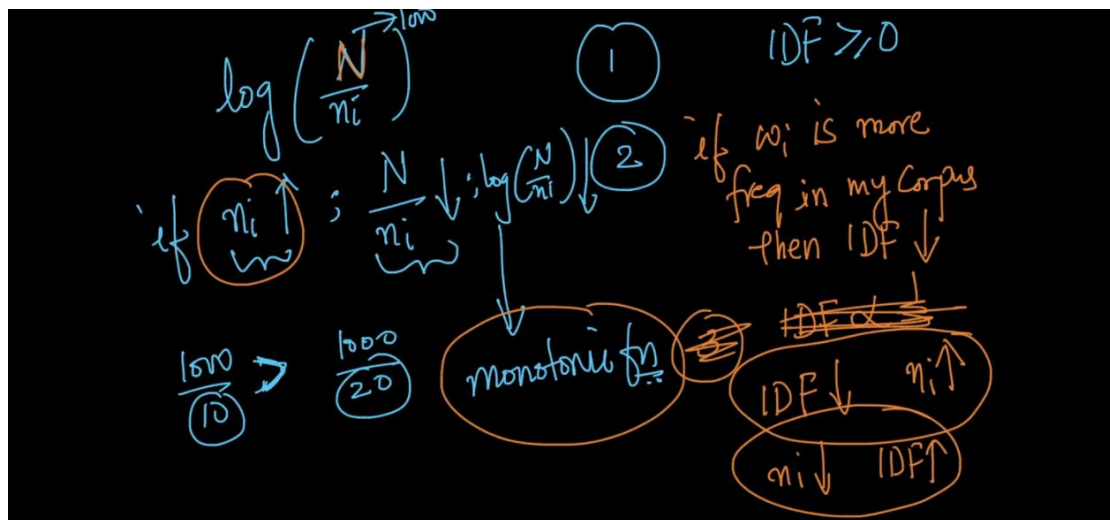 log (N/ni) → 1000
1
IDF ≥ 0
if ni ↑ ; N/ni ↓ ; log(N/ni) ↓ 2
if wi is more
freq in my Corpus
then IDF ↓
1000/10 > 1000/20
monotonic fn
3
IDF α 1
IDF ↓ ni ↑
ni ↓ IDF ↑